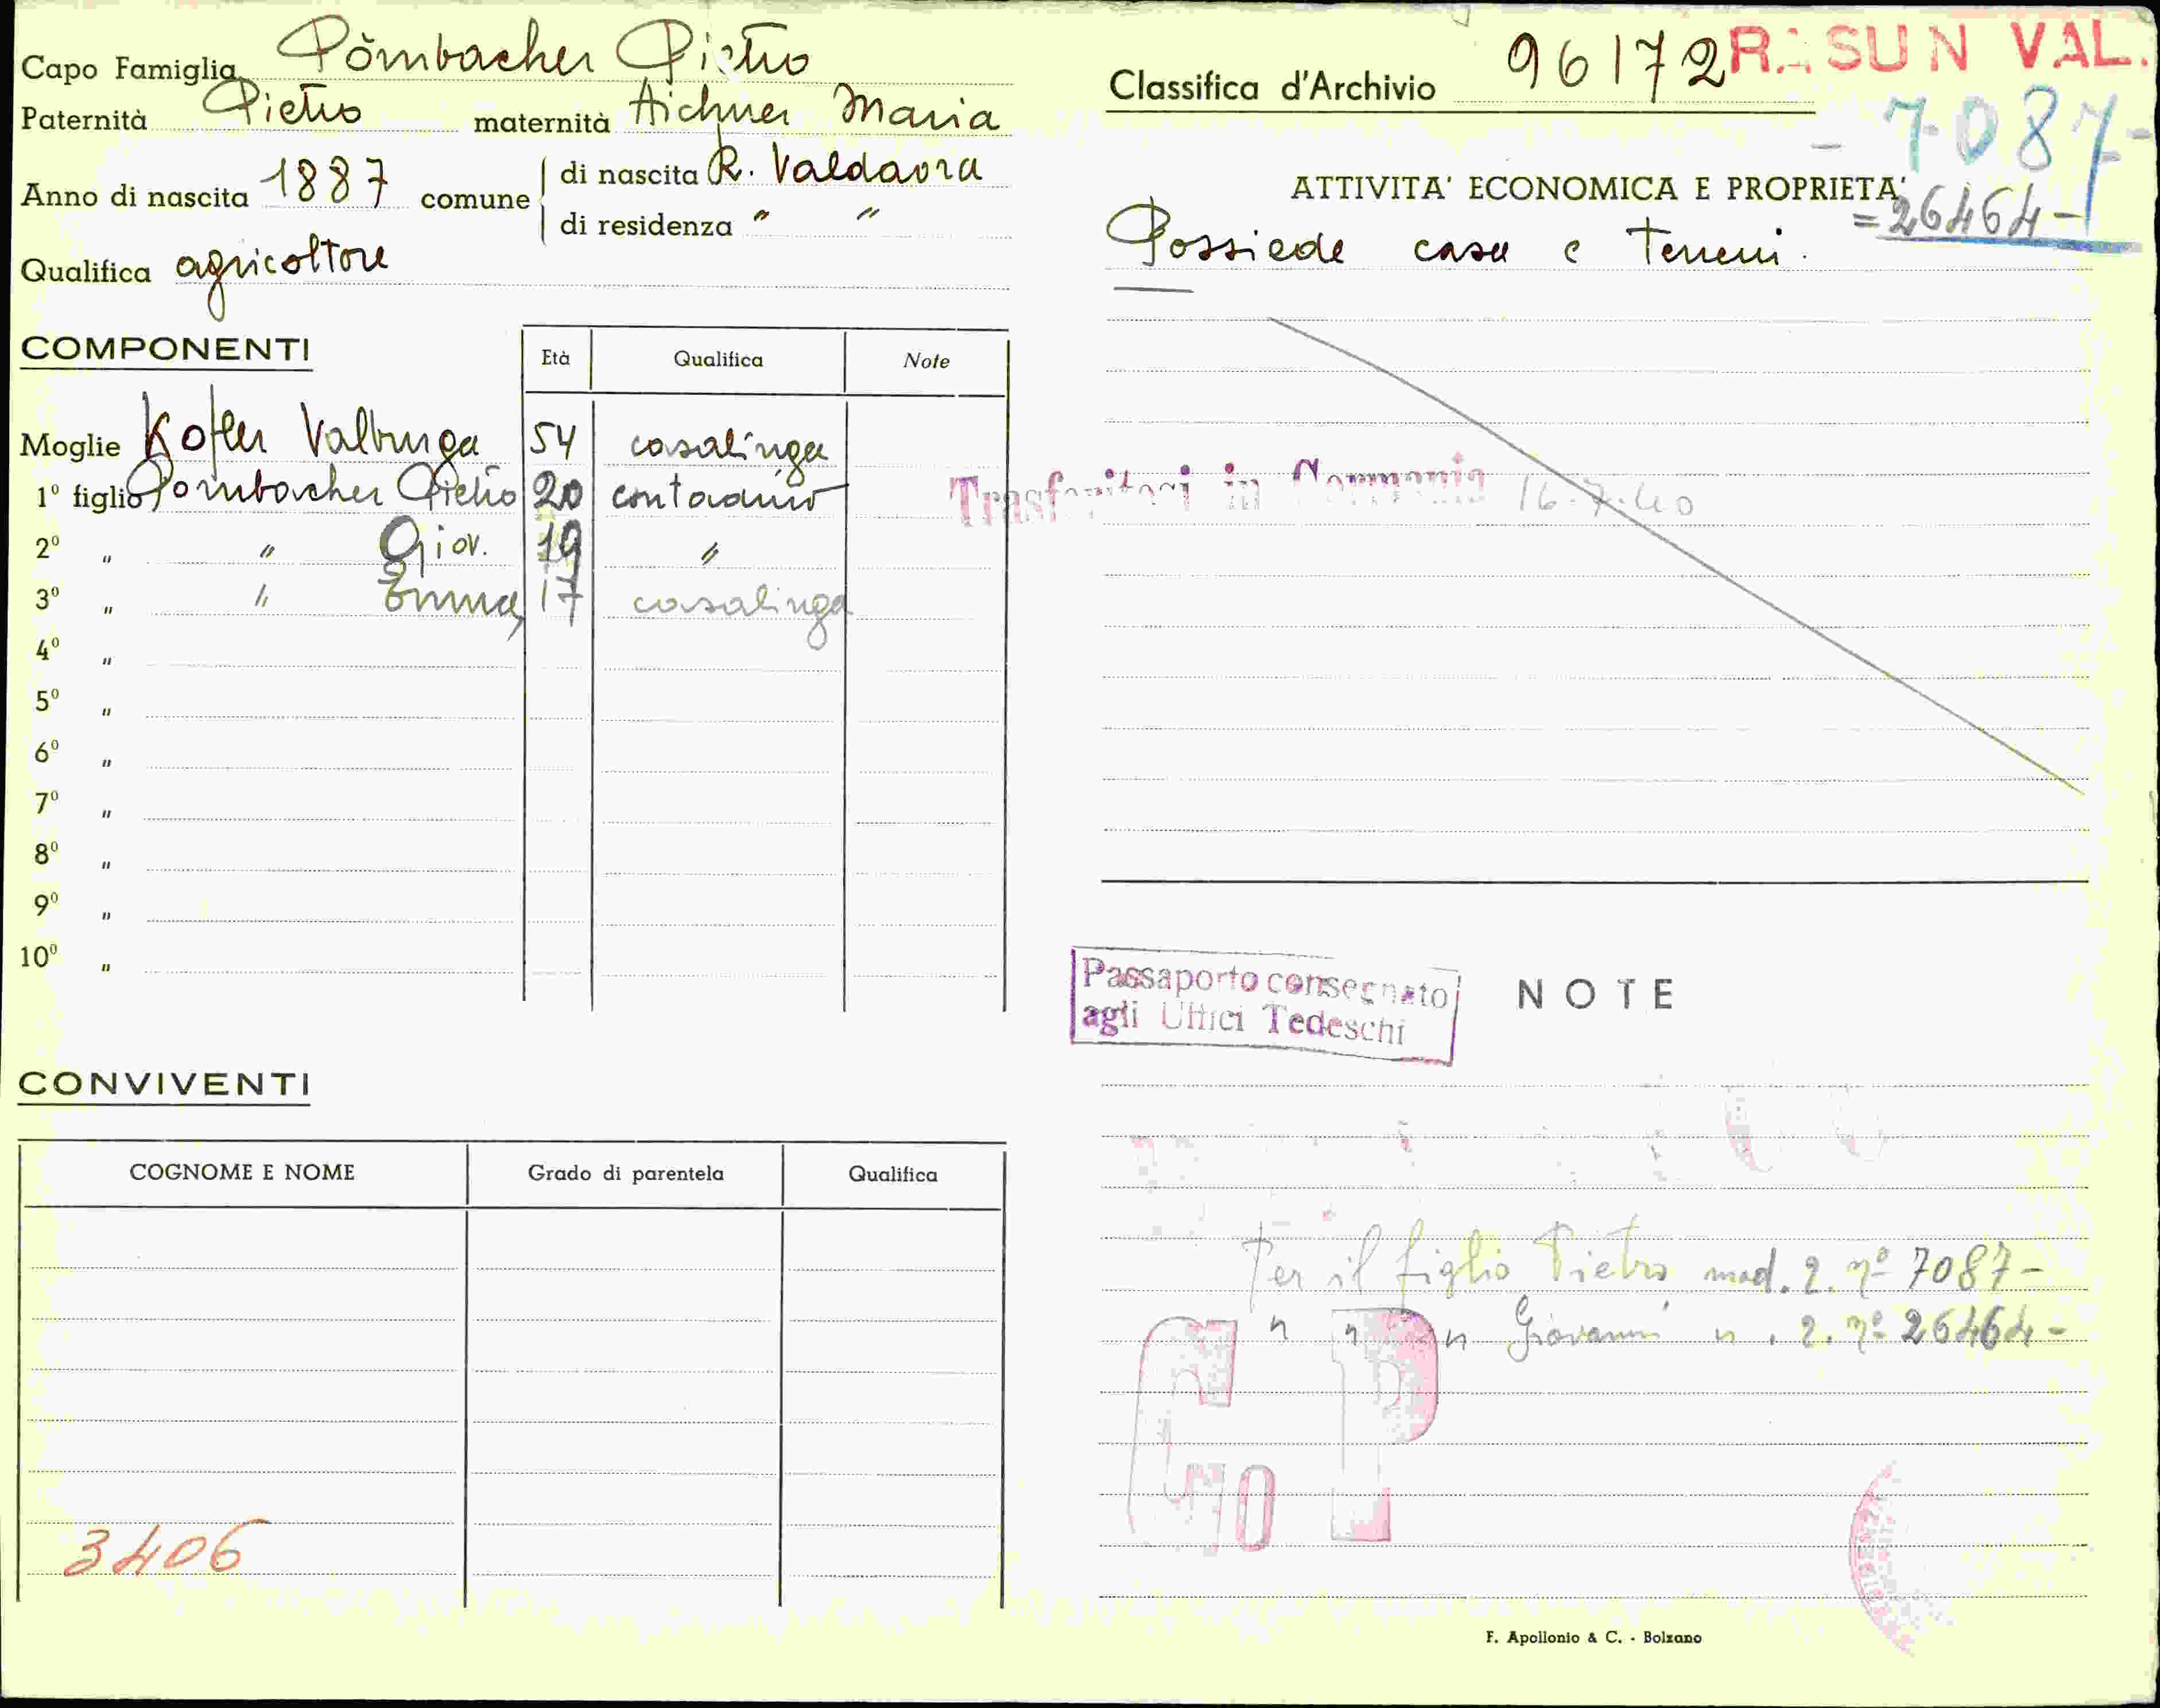 Capo Famiglia Pömbacher Pietro
Paternità Pietro maternità Aichner Maria
Anno di nascita 1887 comune di nascita R. Valdaora
di residenza " "
Qualifica agricoltore
COMPONENTI Età Qualifica Note
Moglie Kofler Valburga 54 casalinga
1º figlio Pombacher Pietro 20 contadino
2º " " Giov. 19 "
3º " " Emma 17 casalinga
4º "
5º "
6º "
7º "
8º "
9º "
10º "
CONVIVENTI
COGNOME E NOME Grado di parentela Qualifica
3406
Classifica d'Archivio 96172 RASUN VAL.
- 7087-
ATTIVITA' ECONOMICA E PROPRIETA'
=26464-
Possiede casa e terreni.
Trasferitosi in Germania 16-7-40
Passaporto consegnato
agli Uffici Tedeschi
NOTE
Per il figlio Pietro mod. 2. nº 7087-
" " " Giovanni " . 2. nº 26464-
G P
NO
F. Apollonio & C. - Bolzano